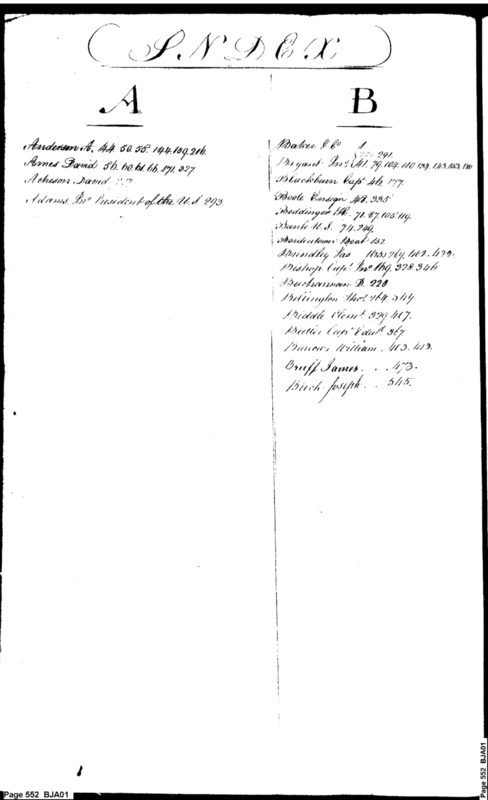 INDEX
A
Anderson A. 44. 50. 55. 144. 159. 206.
Ames David 56. 60. 61. 66. 171. 327
Acheson David
Adams Jnº President of the U.S. 293.
B
Baker & Co 1
291.
Bryant Jnº 41. 79. 104. 110. 134. 143. 153.
Blackburn Capt 46. 177.
Boote Ensign 48. 335
Beddinger 71. 87. 105. 119.
Bank U.S. 74. 249.
Bordentown Boat 152
Brindley Jas 269. 402.
Bishop Capt Jnº 169. 328. 346
Buchannan D. 220
Billington Thoˢ 264. 349.
Biddle Clemt 329. 407.
Butler Capt Edwd 367
Burrows William 403. 413.
Bruff James . . 473.
Buck Joseph . . 545.
Page 552 BJA01
Page 552 BJA01